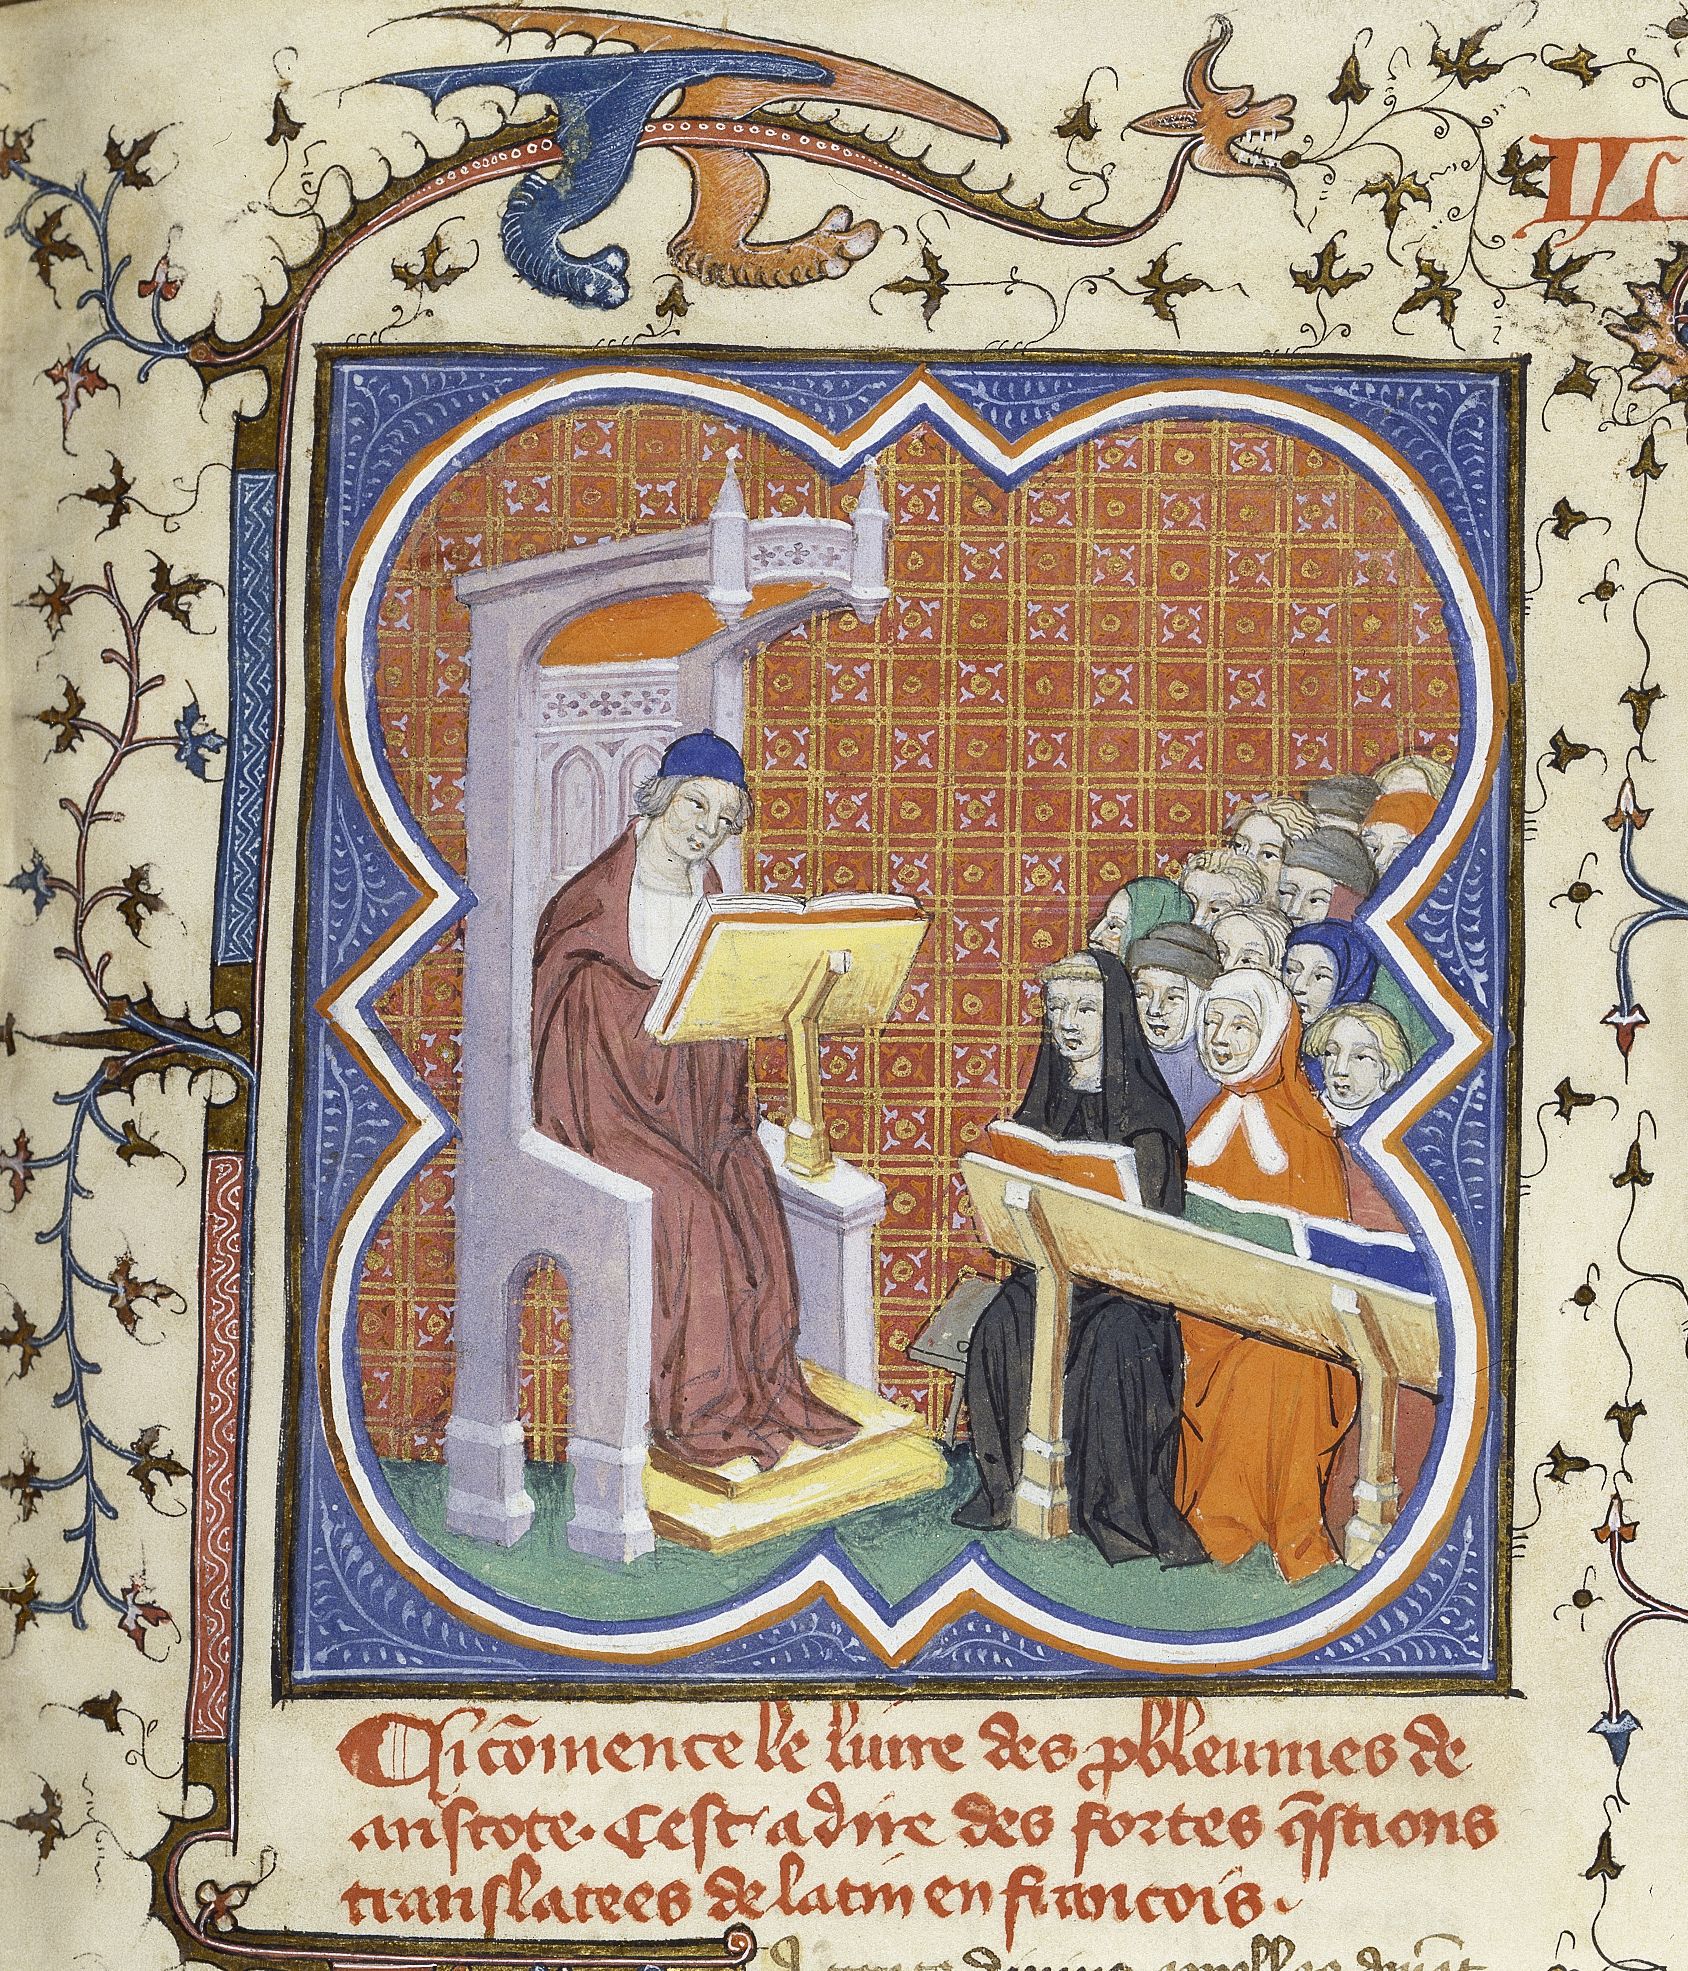 IL
Ci cõmence le liure des ꝓbleumes de
aristote. Cest adire des fortes q̃stions
translatees de latin en francois.